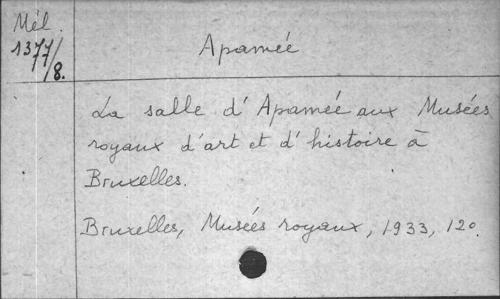 Mél.
1377/8.
Apamée
La salle d'Apamée aux Musées
royaux d'art et d'histoire à
Bruxelles.
Bruxelles, Musées royaux, 1933, 12o.